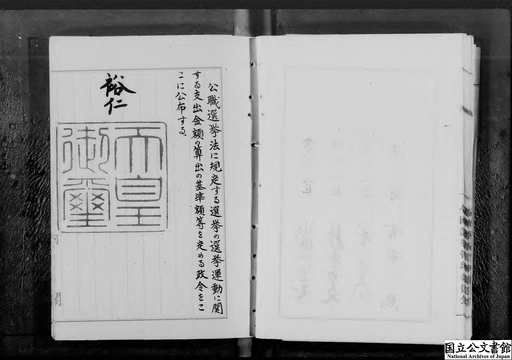 公職選挙法に規定する選挙の選挙運動に関
する支出金額の算出の基準額等を定める政令をこ
こに公布する。
裕仁
天皇御璽
国立公文書館
National Archives of Japan